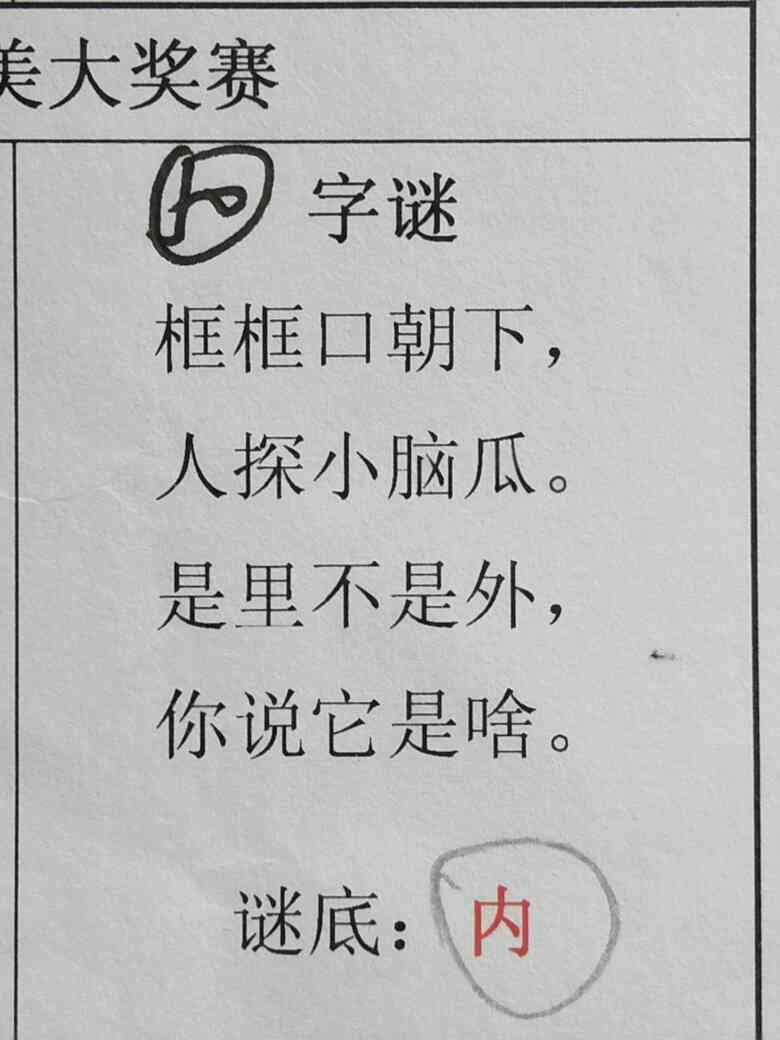 美大奖赛
字谜
框框口朝下，
人探小脑瓜。
是里不是外，
你说它是啥。
谜底：内